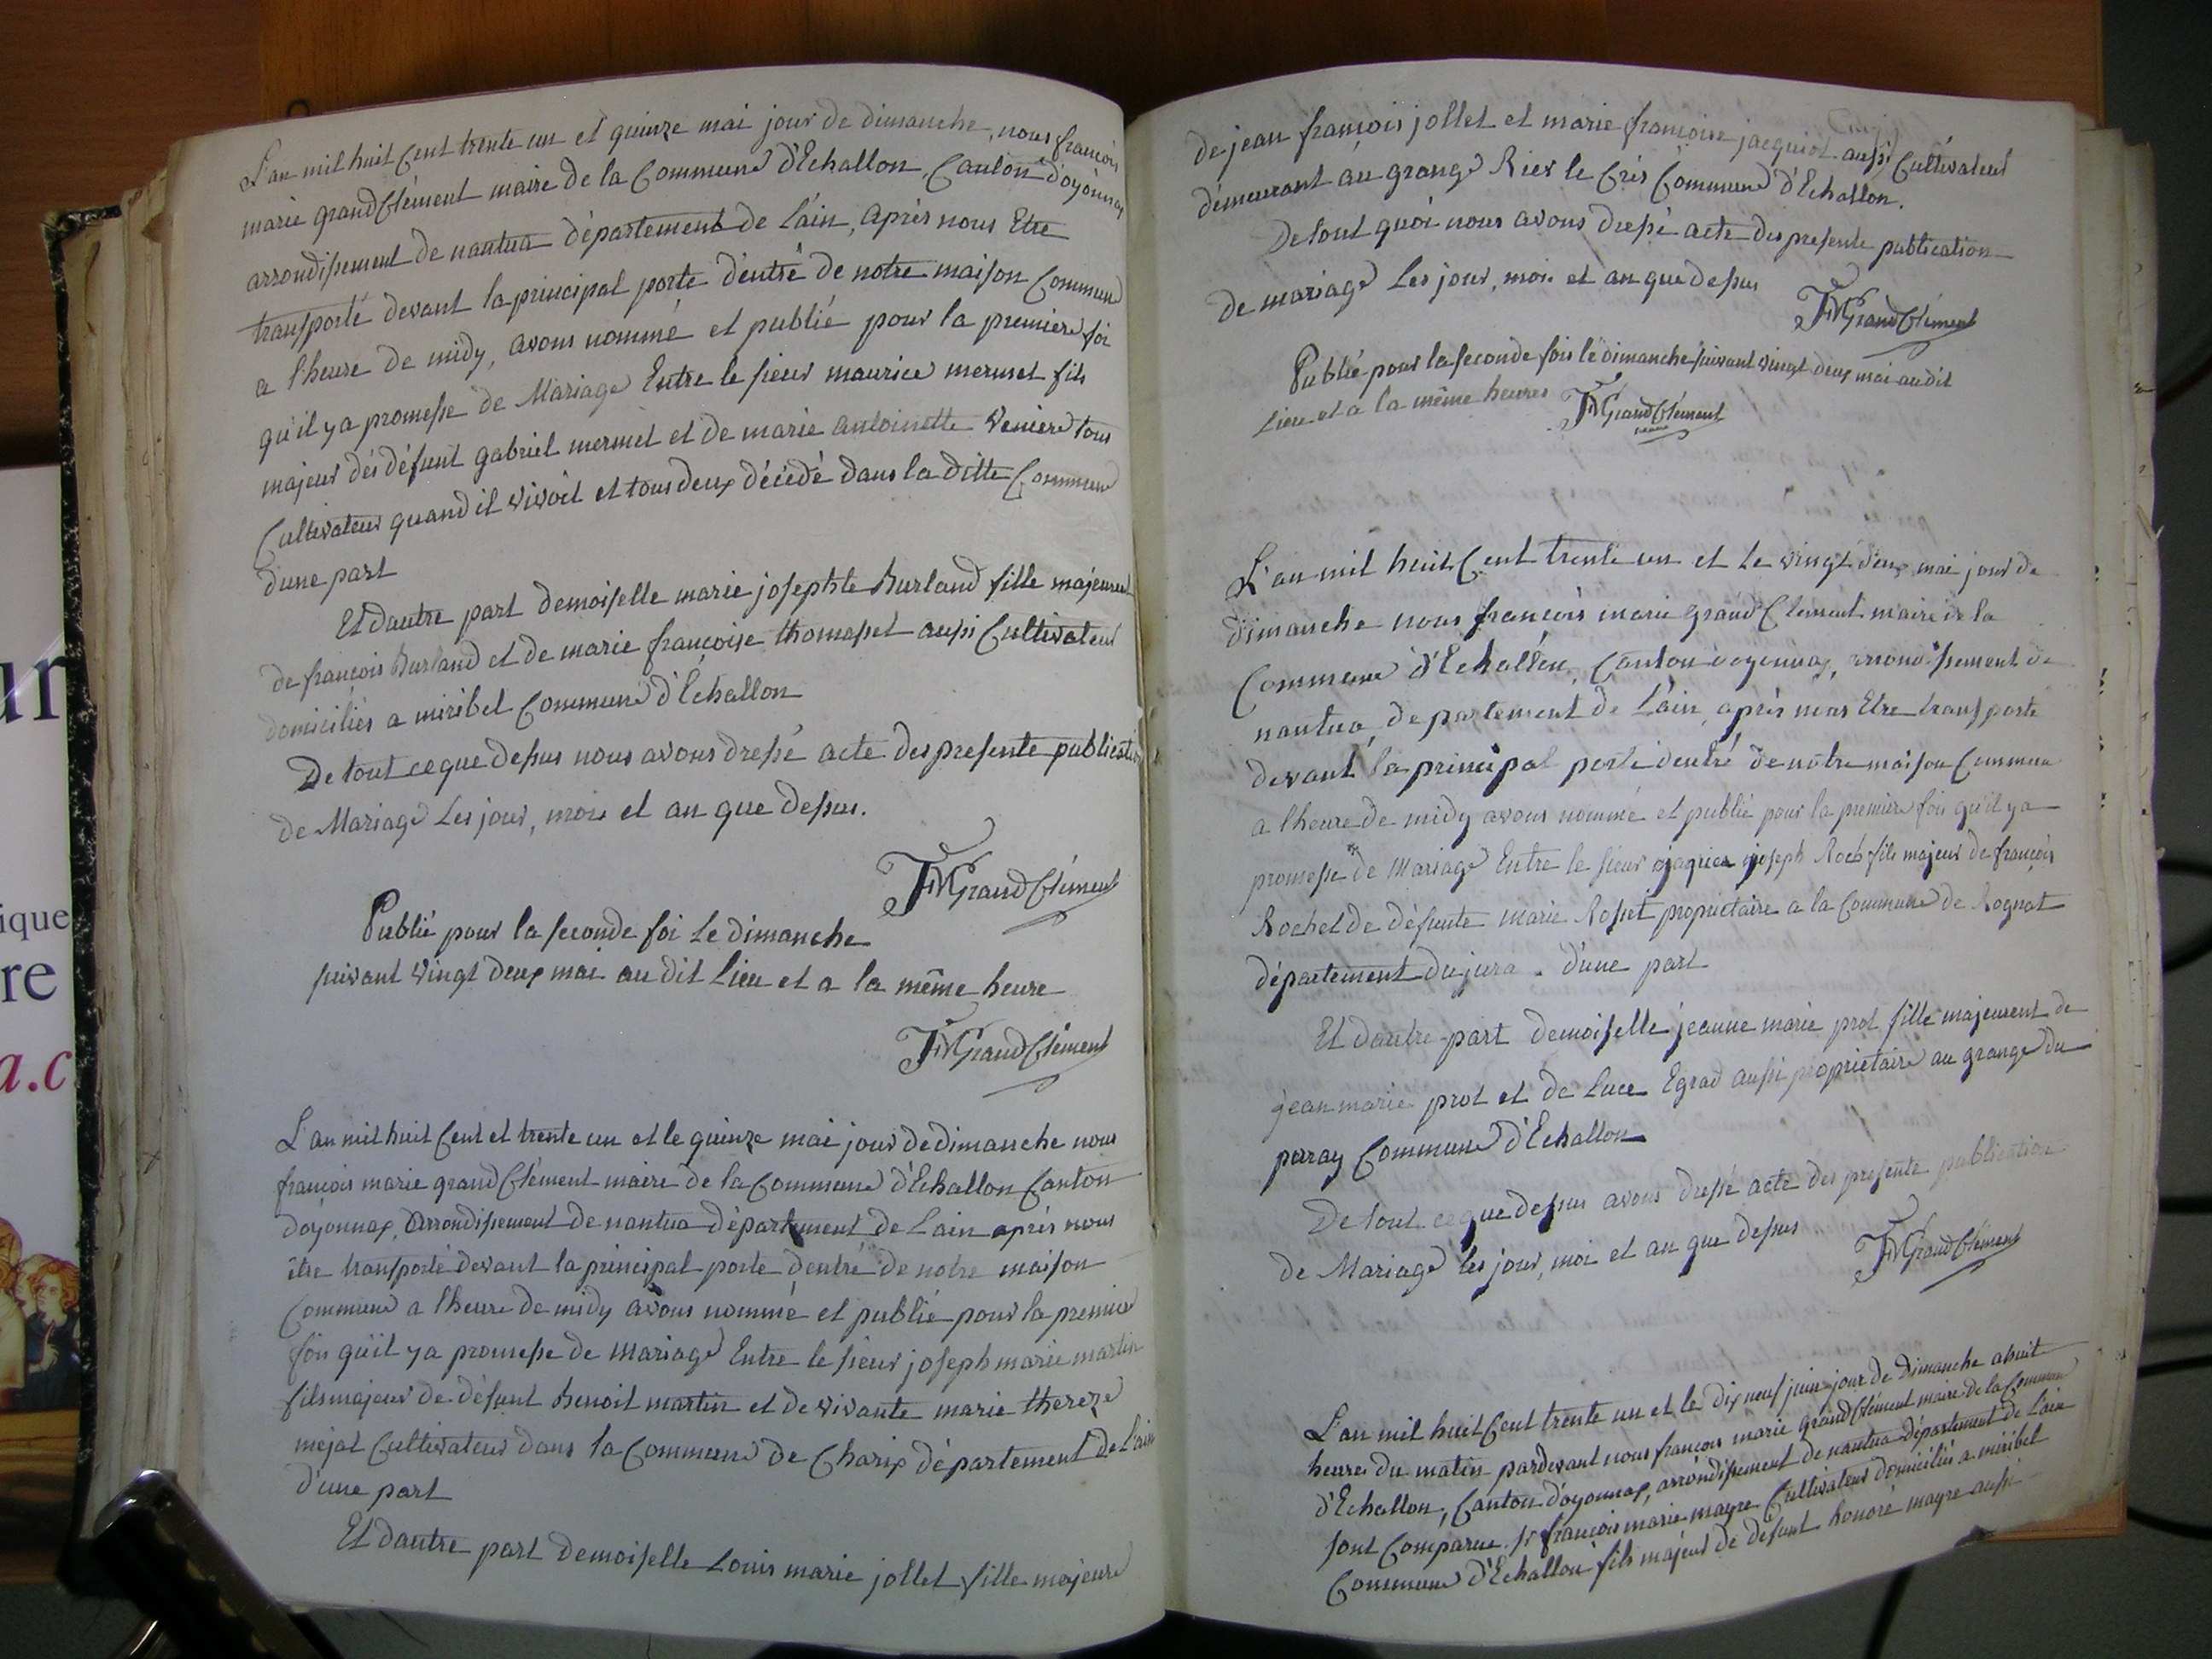 L'an mil huit Cent trente un et quinze mai jour de dimanche, nous françois
marie grandClément maire de la Commune d'Echallon, Canton d'oyonnax
arrondissement de nantua département de Lain, après nous Etre
transporté devant la principal porte d'entré de notre maison Commune
a l'heure de midy, avons nommé et publié pour la premiere foi
qu'il y a promesse de Mariage Entre le sieur maurice mermet fils
majeur dés défunt gabriel mermet et de marie antoinette Veniere tous
Cultivateur quand il vivoit et tous deux décédé dans la ditte Commune
d'une part
Et dautre part demoiselle marie josephte Burland fille majeurent
de françois Burland et de marie françoise thomasset aussi Cultivateur
domiciliés a miribel Commune d'Echallon
De tout ce que dessus nous avons dressé acte des presente publication
de Mariage Les jour, mois et an que dessus.
FMGrandClément
Publié pour la seconde foi Le dimanche
suivant vingt deux mai au dit Lieu et a la même heure
FMGrandClément
L'an mil huit Cent et trente un et le quinze mai jour de dimanche nous
françois marie grandClément maire de la Commune d'Echallon Canton
d'oyonnax, arrondissement de nantua département de Lain après nous
être transporté devant la principal porte d'entré de notre maison
Commune a l'heure de midy avons nommé et publié pour la premier
fois qu'il y a promesse de Mariage Entre le sieur joseph marie martin
fils majeur de défunt Benoit martin et de vivante marie thereze
mejat Cultivateur dans la Commune de Charix département de L'ain
d'une part
Et dautre part demoiselle Louis marie jollet fille majeure
de jean françois jollet et marie françoise jacquiot aussi Cultivateur
démeurant au grange Rier le Crés Commune d'Echallon.
De tout quoi nous avons dressé acte des presente publication
de mariage Les jour, mois et an que dessus
FMGrandClément
Publié pour la seconde fois le dimanche suivant vingt deux mai au dit
Lieu et a la même heures FMGrandClément
L'an mil huit Cent trente un et le vingt deux mai jour de
dimanche nous françois marie grand Clement maire de la
Commune d'Echallon, Canton d'oyonnax, arrondissement de
nantua, département de L'ain, après nous Etre transporté
devant la principal porte d'entré de nôtre maison Commune
a lheure de midy avons nommé et publié pour la première fois qu'il y a
promesse de Mariage Entre le sieur joseph Roch fils majeur de françois
Rochet de défunte marie Rosset proprietaire a la Commune de Rognat
département du jura. d'une part
Et dautre part demoiselle jeanne marie prot fille majeurent de
jean marie prot et de Luce Egrad aussi proprietaire au grange du
parray Commune d'Echallon
De tout ce que dessus avons dressé acte des presente publication
de Mariage les jour, moi et an que dessus
FMGrandClément
L'an mil huit Cent trente un et le dix neuf juin jour de Dimanche a huit
heures du matin pardevant nous françois marie grandClément maire de la Commune
d'Echallon, Canton d'oyonnax, arrondissement de nantua département de L'ain
sont Comparue Sr françois marie mayre Cultivateur domicilié a miribel
Commune d'Echallon fils majeur de défunt honoré mayre aussi
ique
re
a.c